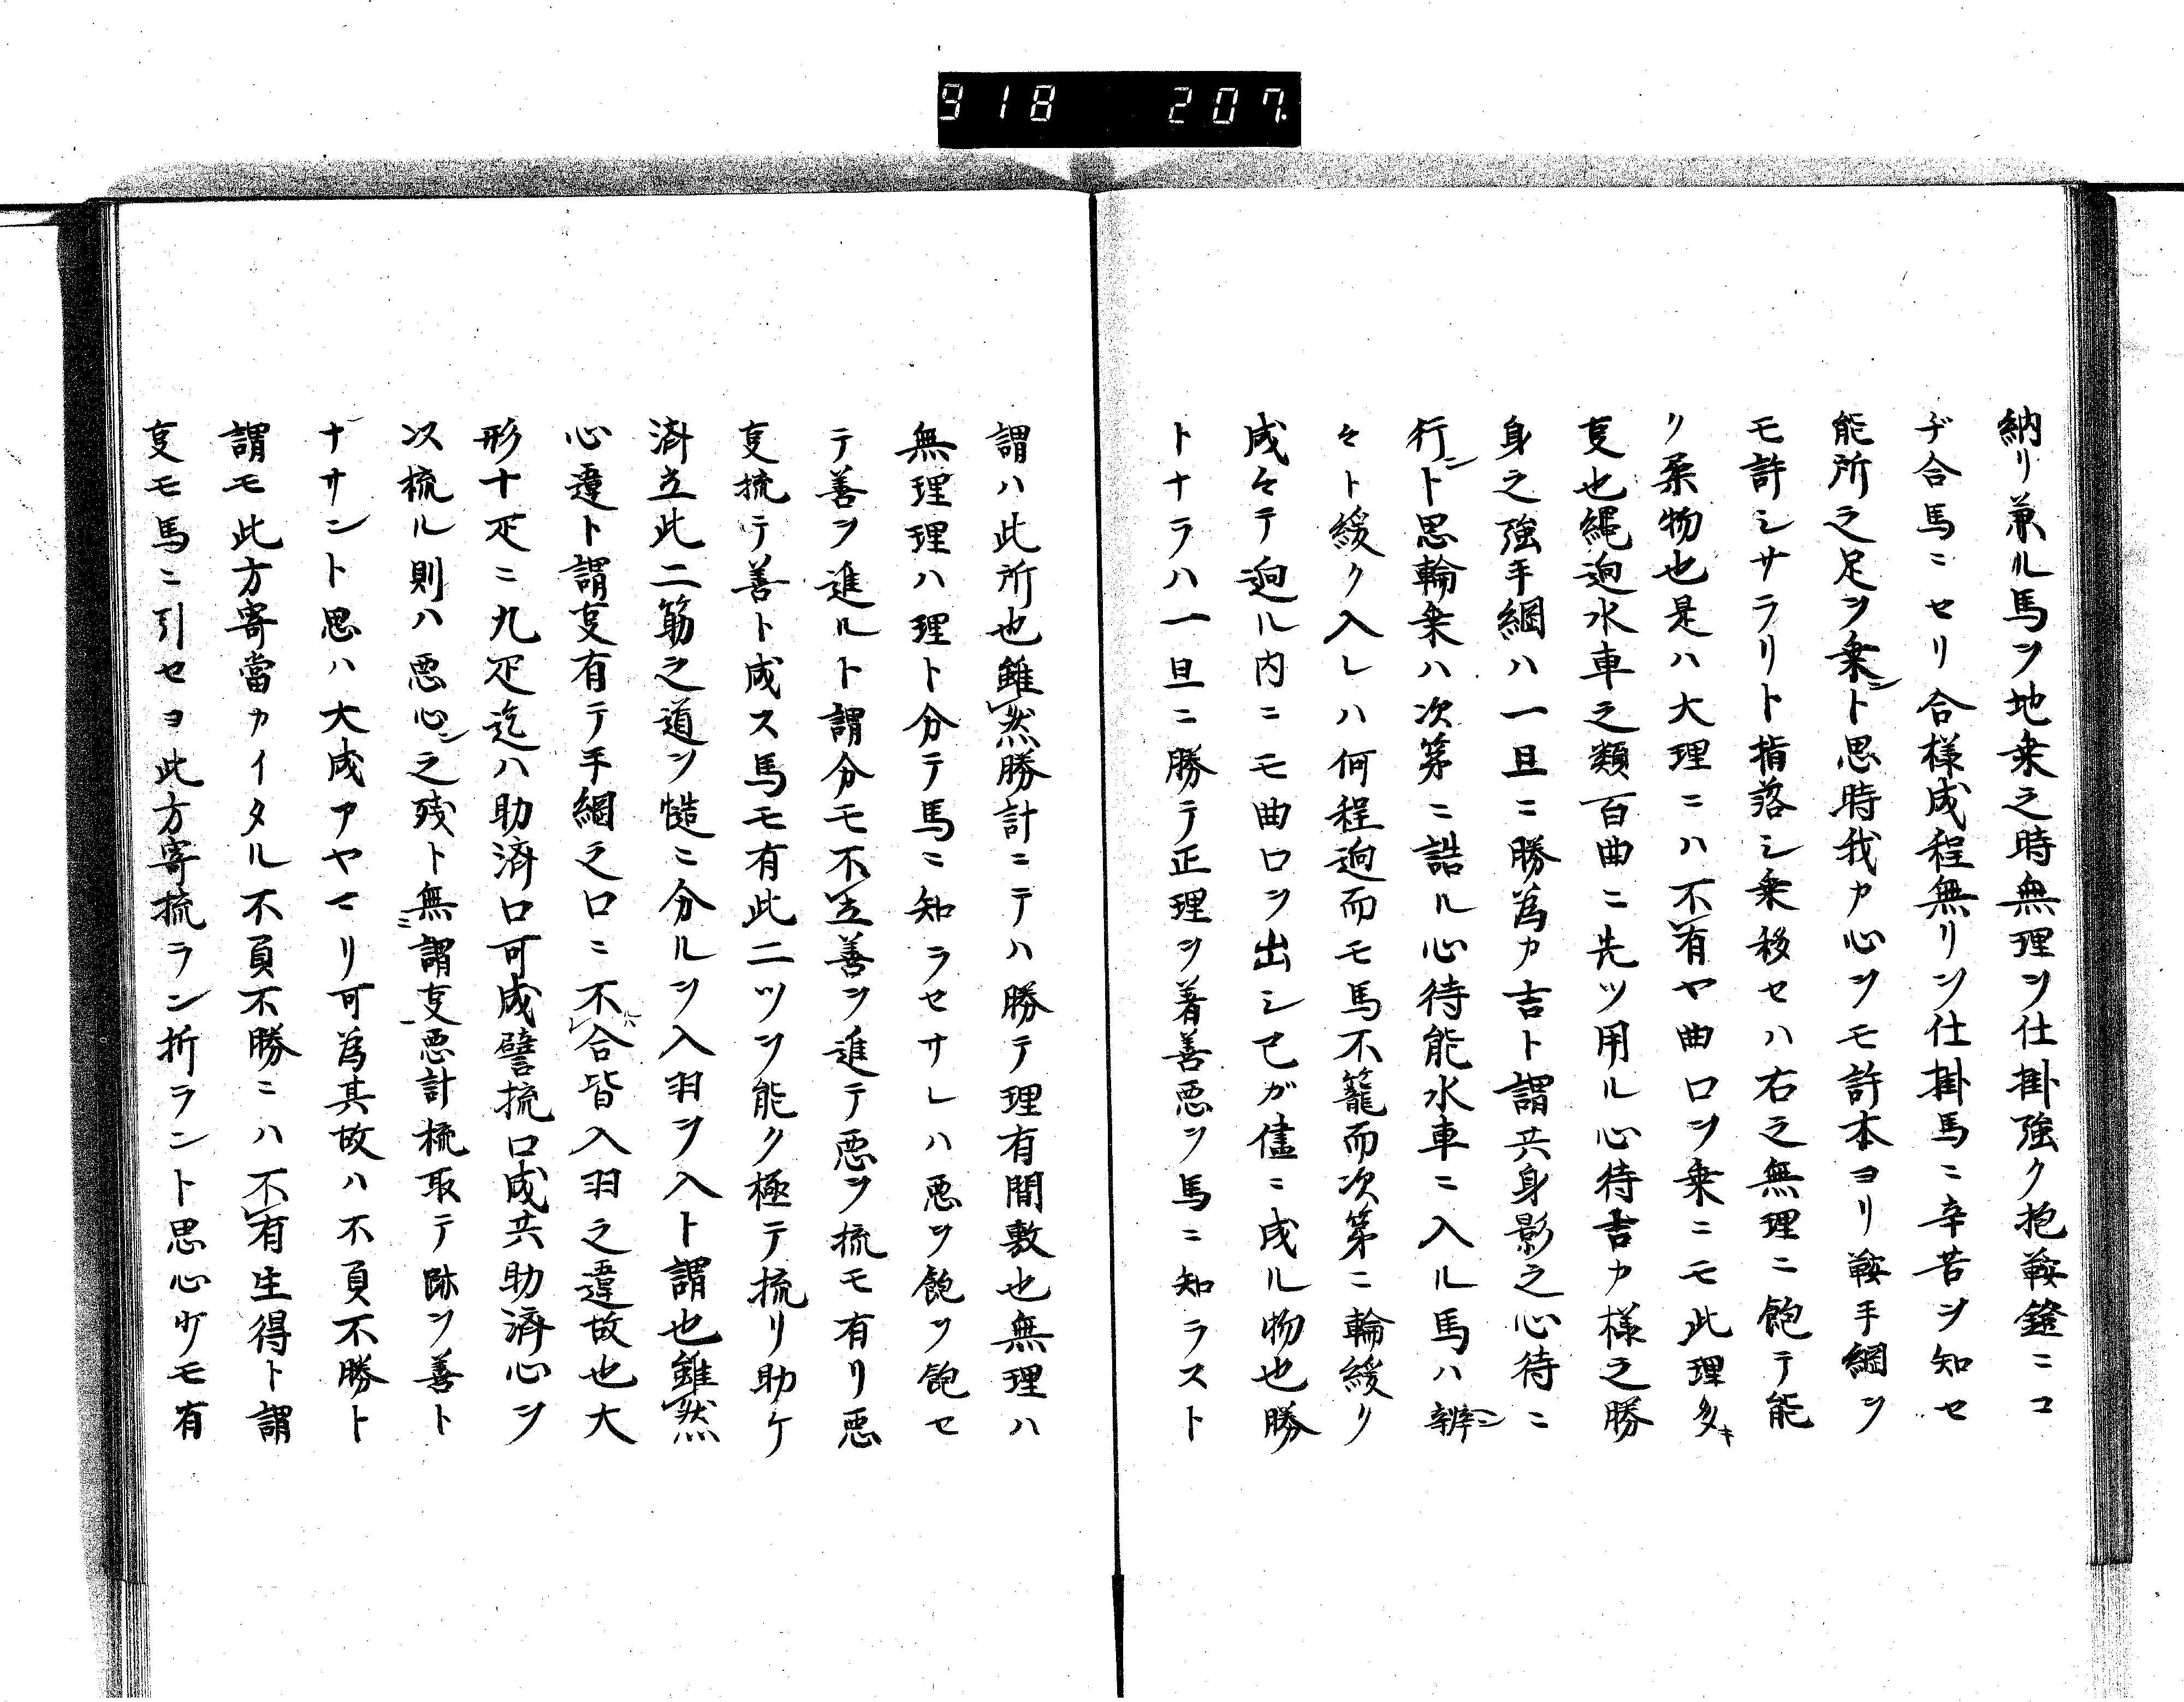 918 207.
納リ兼ル馬ヲ地乗之時無理ヲ仕掛強ク抱鞍鐙ニコ
ヂ合馬ニセリ合様成程無リヲ仕掛馬ニ辛苦ヲ知セ
能所之足ヲ乗ント思時我カ心ヲモ許本ヨリ鞍手綱ヲ
モ許シサラリト指落シ乗移セハ右之無理ニ飽テ能
リ柔物也是ハ大理ニハ不有ヤ曲口ヲ乗ニモ此理多キ
亊也縄廻水車之類百曲ニ先ツ用ル心待吉カ様之勝
身之強手綱ハ一旦ニ勝為カ吉ト謂共身影之心待ニ
行ント思輪乗ハ次第ニ詰ル心待能水車ニ入ル馬ハ辨ン
々ト緩ク入レハ何程廻而モ馬不籠而次第ニ輪緩リ
成々テ廻ル内ニモ曲口ヲ出シ已ガ儘ニ成ル物也勝
トナラハ一旦ニ勝テ正理ヲ着善悪ヲ馬ニ知ラスト
謂ハ此所也雖然勝計ニテハ勝テ理有間敷也無理ハ
無理理ハ理ト分テ馬ニ知ラセサレハ悪ヲ飽ヲ飽セ
テ善ヲ進ルト謂分モ不立善ヲ進テ悪ヲ梳モ有リ悪
亊梳テ善ト成ス馬モ有此二ツヲ能ク極テ梳リ助ケ
済立此二筋之道ヲ慥ニ分ルヲ入羽ヲ入ト謂也雖然
心違ト謂亊有テ手綱之口ニ不合皆入羽之違故也大
形十疋ニ九疋迄ハ助済口可成譬梳口成共助済心ヲ
次梳ル則ハ悪心之残ト無謂亊悪計梳取テ跡ヲ善ト
ナサント思ハ大成アヤマリ可為其故ハ不負不勝ト
謂モ此方寄當カイタル不負不勝ニハ不有生得ト謂
亊モ馬ニ引セヨ此方寄梳ラン折ラント思心少モ有